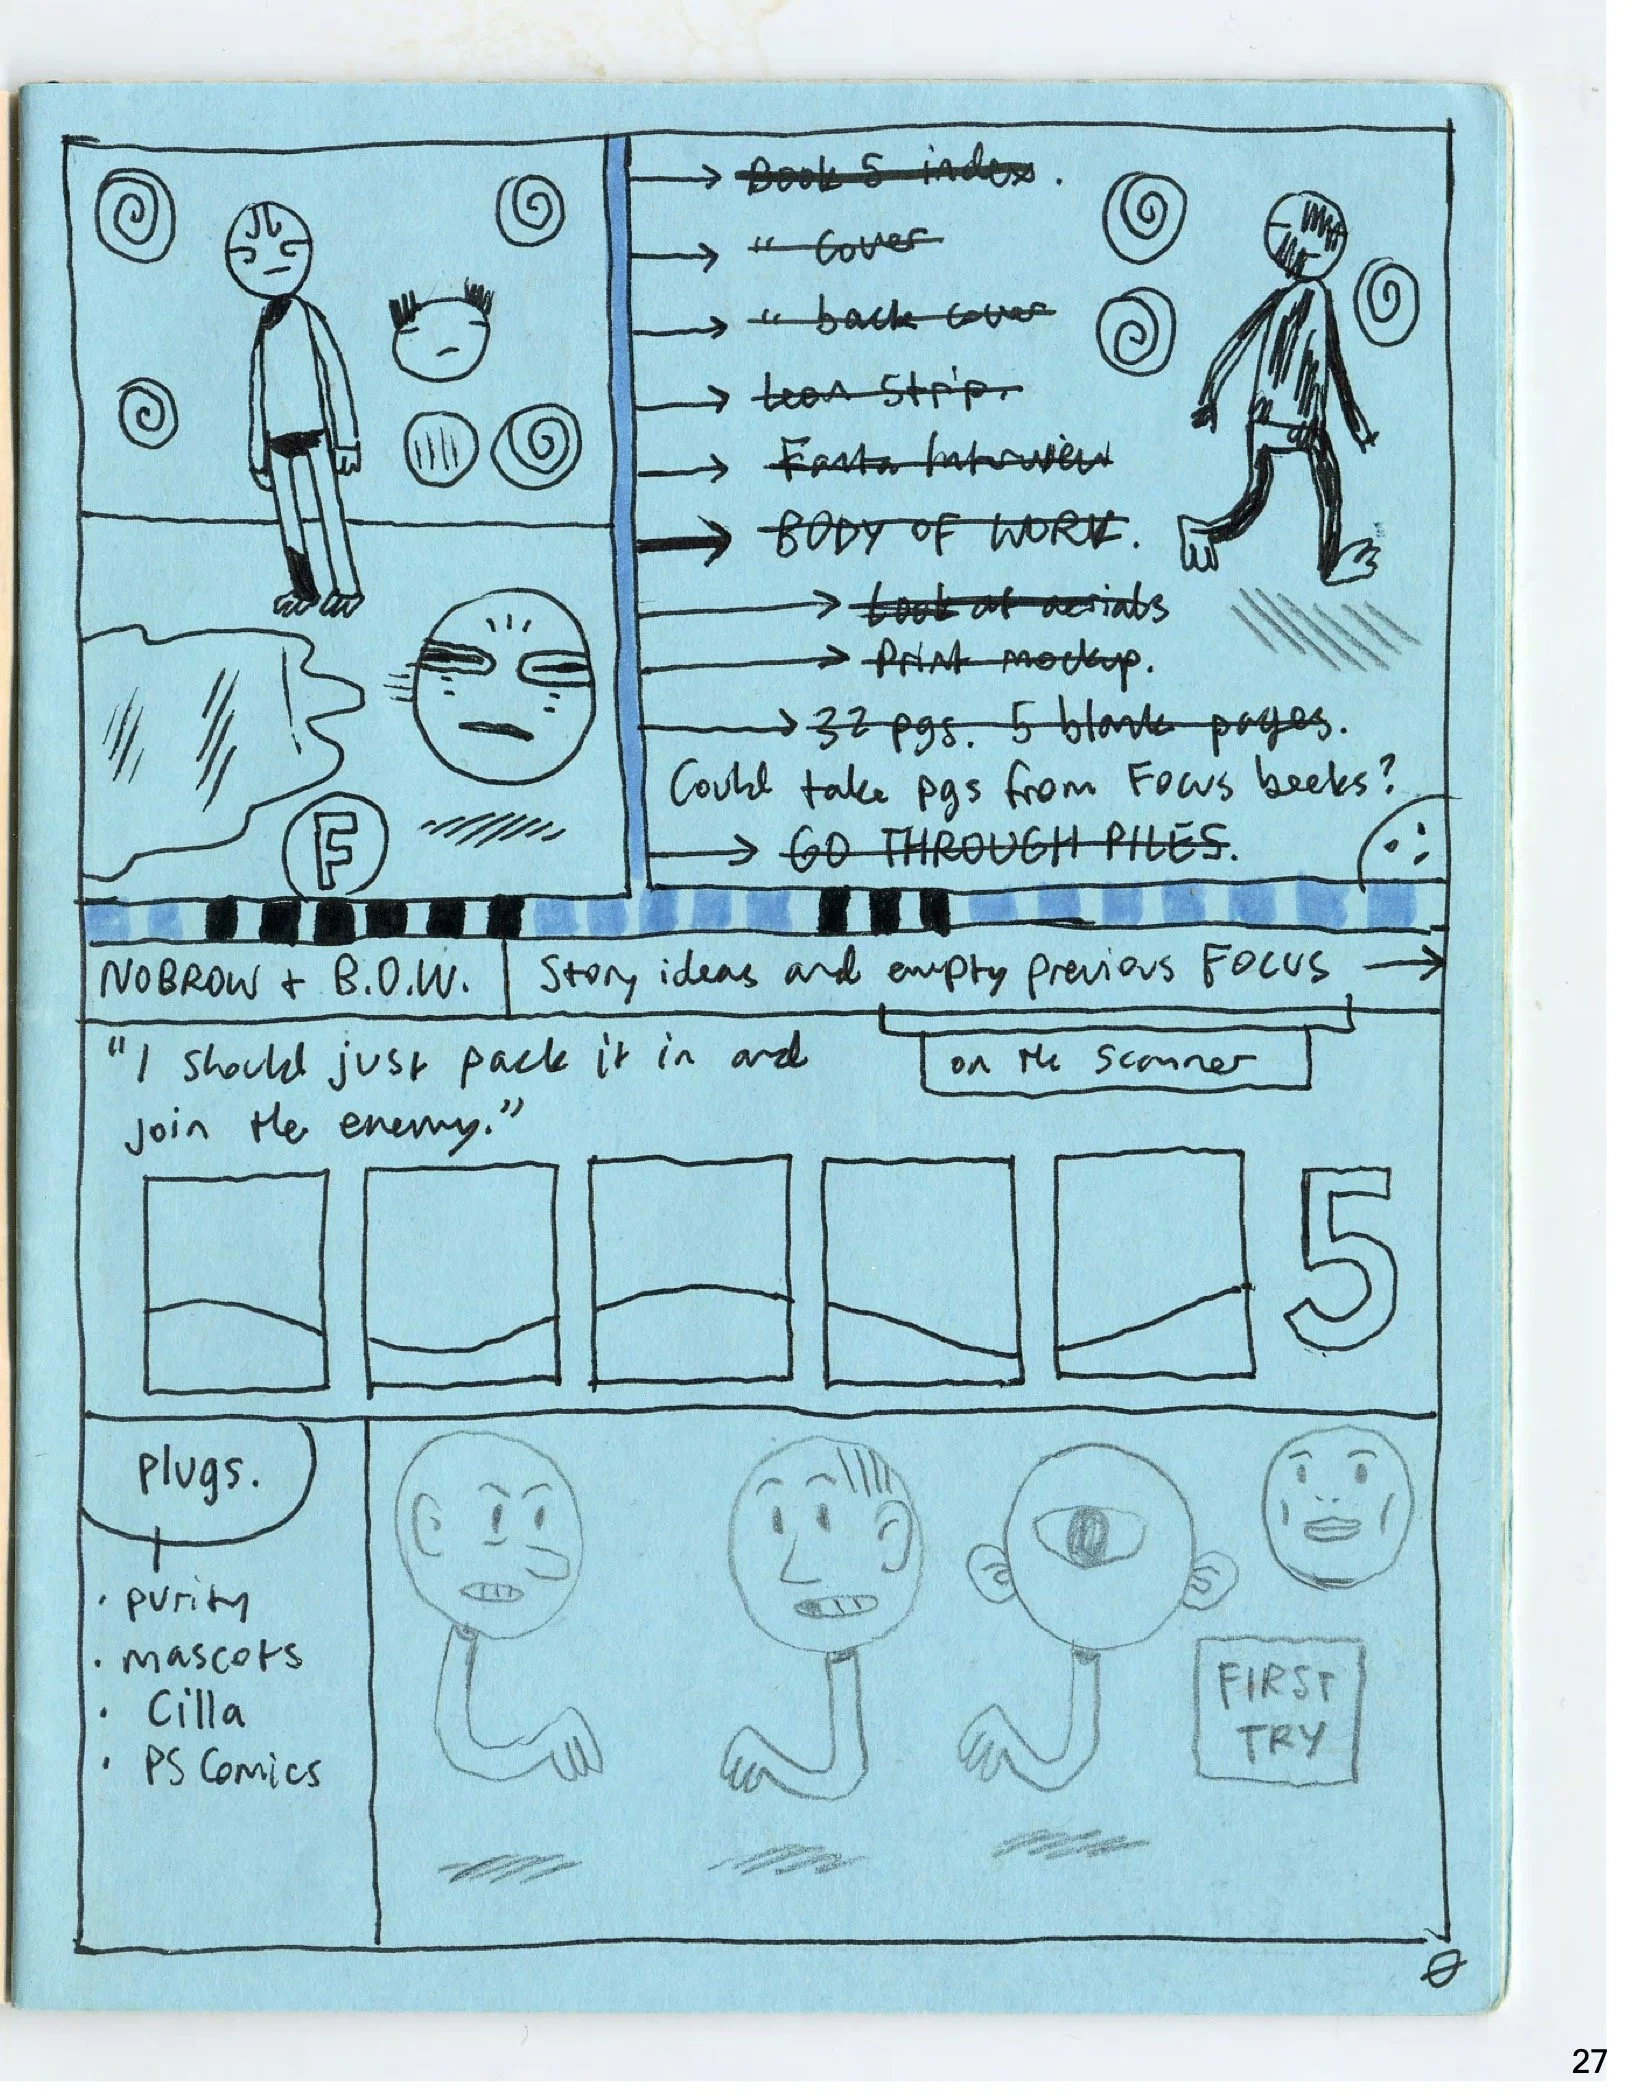 Book 5 index.
" cover
" back cover
Leon Strip.
Fanta Interview
BODY OF WORK.
Look at aerials
Print mockup.
32 pgs. 5 blank pages.
Could take pgs from Focus books?
GO THROUGH PILES.
F
NOBROW + B.O.W.
Story ideas and empty previous FOCUS
on the scanner
"I should just pack it in and
join the enemy."
5
plugs.
· purity
· mascots
· Cilla
· PS Comics
FIRST
TRY
27